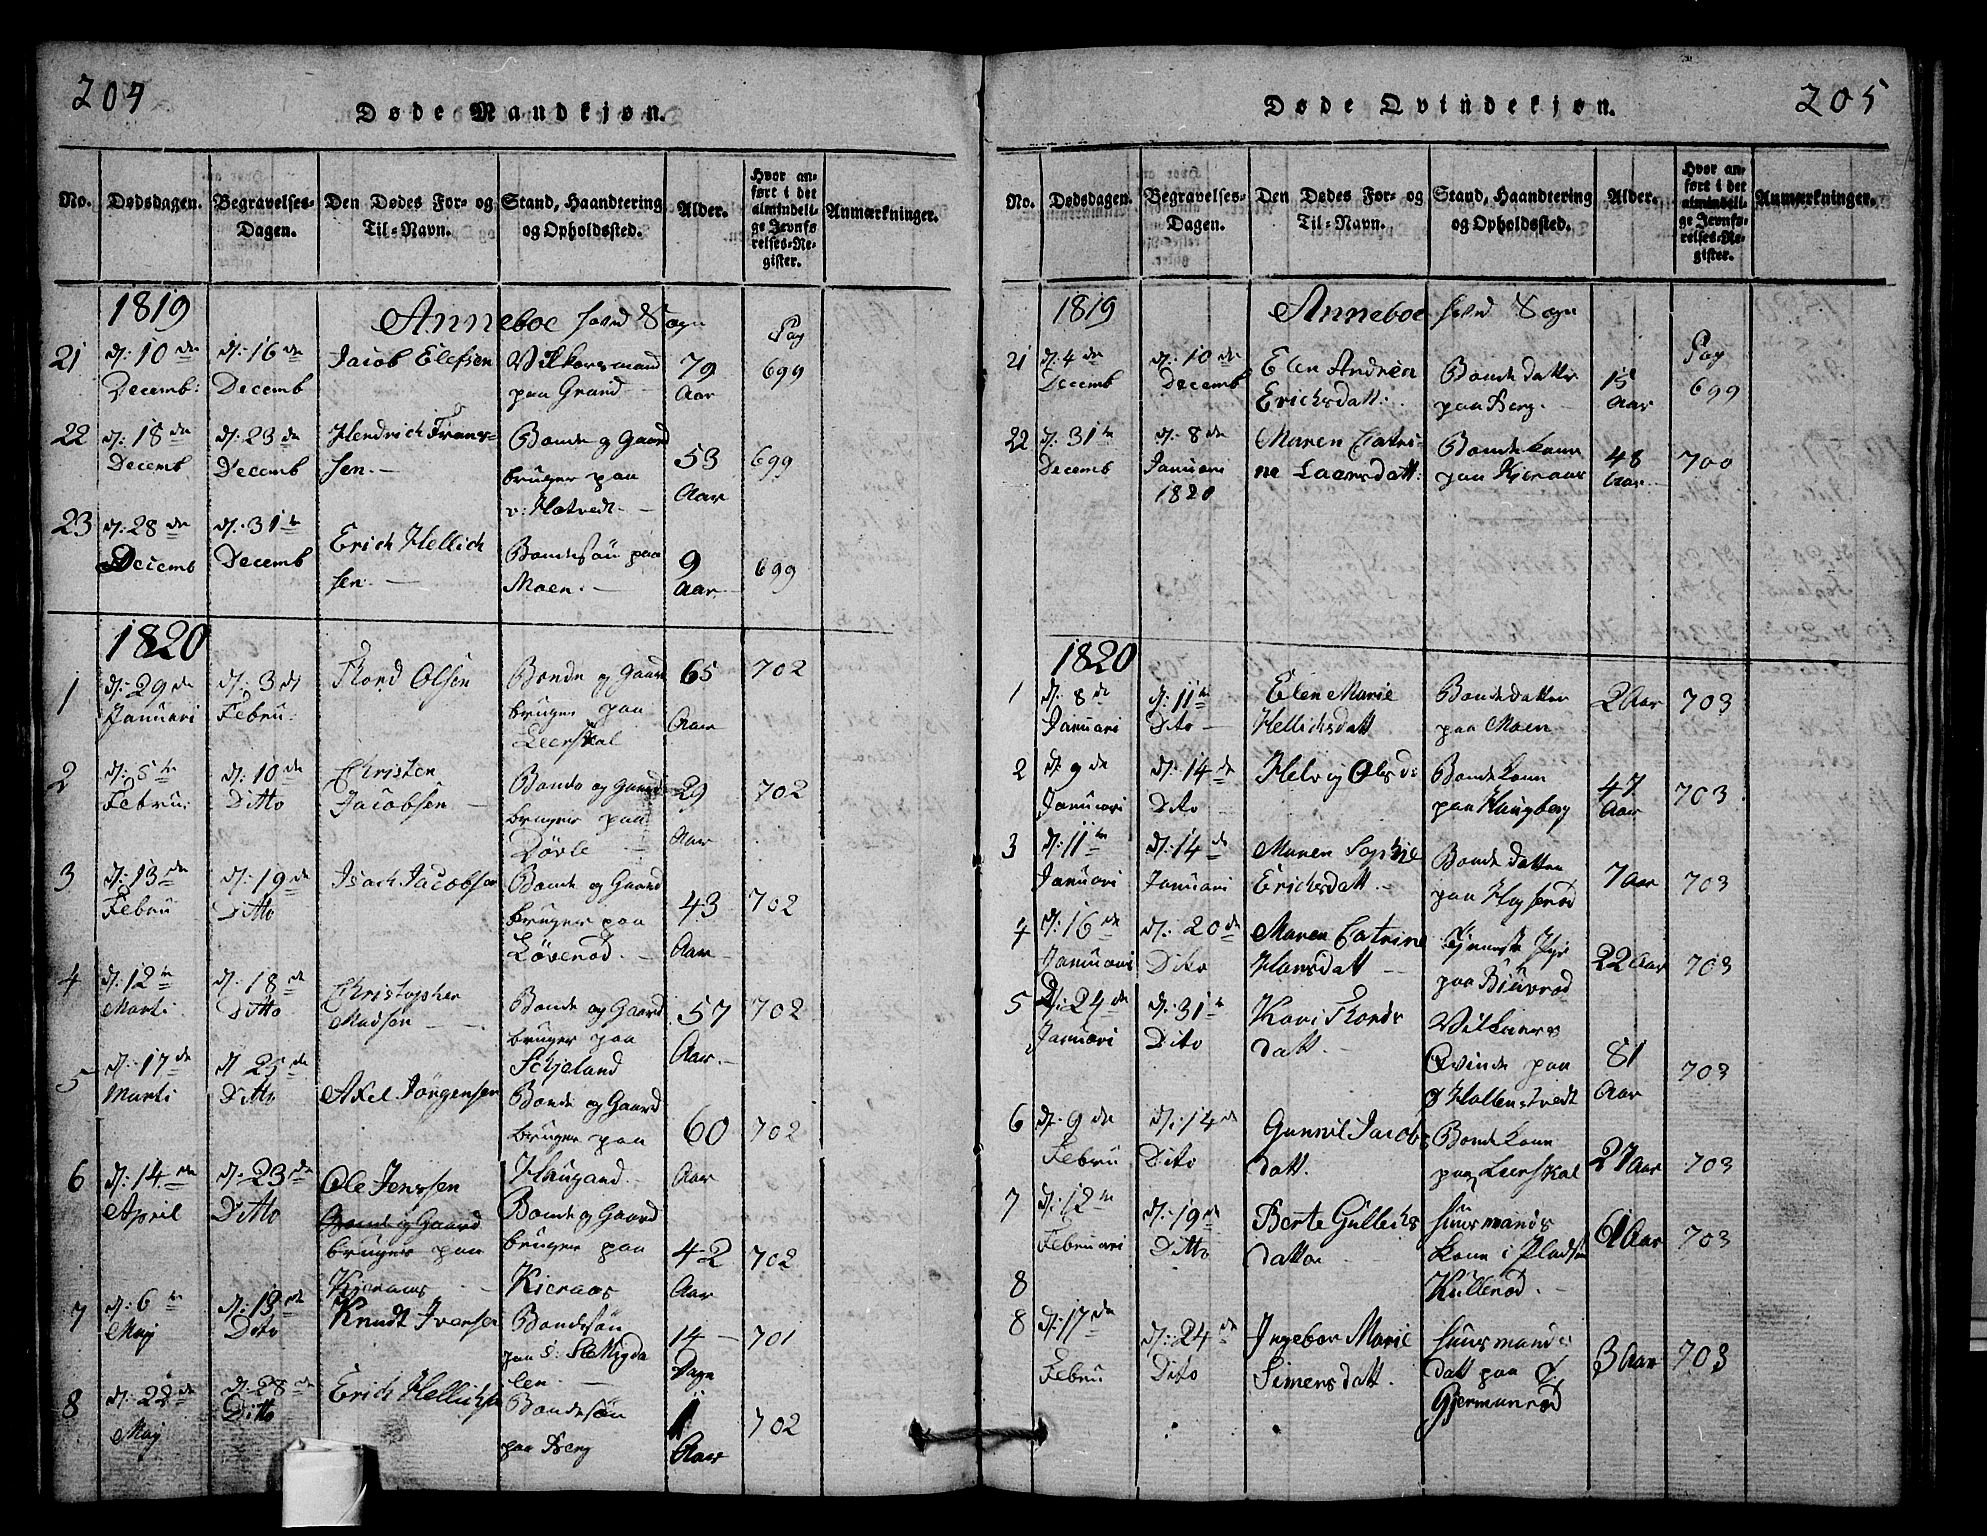 204
Døde Mandkjøn.
No.
Dødsdagen.
Begravelses-
Dagen.
Den Dødes For- og
Til-Navn.
Stand, Haandtering
og Opholdssted.
Alder.
Hvor an-
ført i det
almindeli-
ge Jevnfø-
relses-Re-
gister.
Anmærkninger.
1819
Anneboe hoved Sogn
Pag
21
d: 10de
Decemb:
d: 16de
Decemb
Jacob Elefsen
Vilkorsmand
paa Grand
79
Aar
699
22
d: 18de
Decemb
d: 23de
Decemb
Hendrich Frans-
sen.
Bonde og Gaard
bruger paa
v: Hotvedt.
53
Aar
699
23
d: 28de
Decemb
d: 31te
Decemb
Erich Hellich
sen.
Bondesøn paa
Moen.
9
Aar
699
1820
1
d: 29de
Januari
d: 3di
Febru:
Thord Olsen
Bonde og Gaard
bruger paa
Leerskal
65
Aar
702
2
d: 5te
Febru:
d: 10de
Ditto
Christen
Jacobsen
Bonde og Gaard
bruger paa
Døvle
29
Aar
702
3
d: 13de
Febru
d: 19de
Ditto
Isach Jacobsen
Bonde og Gaard
bruger paa
Løverød.
43
Aar
702
4
d: 12te
Marti
d: 18de
Ditto
Christopher
Madsen
Bonde og Gaard
bruger paa
Schjeland
57
Aar.
702
5
d: 17de
Marti
d: 25de
Ditto
Axel Jørgensen
Bonde og Gaard
bruger paa
Haugand
60
Aar
702
6
d: 14de
April
d: 23de
Ditto
Ole Jenssen
Bonde og Gaard
bruger paa
Kieraas
Bonde og Gaard
bruger paa
Kieraas
42
Aar
702
7
d: 6te
Maj
d: 13de
Dito
Knudt Iversen
Bondesøn
paa S: Migda
len.
14
Dage
701
8
d: 22de
Maj
d: 28de
Ditto
Erich Hellichsen
Bondesøn
paa Berg
1
Aar
702
205
Døde Qvindekjøn.
No.
Dødsdagen.
Begravelses-
Dagen.
Den Dødes For- og
Til-Navn.
Stand, Haandtering
og Opholdssted.
Alder.
Hvor an-
ført i det
almindeli-
ge Jevnfø-
relses-Re-
gister.
Anmærkninger.
1819
Anneboe hoved Sogn
Pag
21
d: 4de
Decemb
d: 10de
Decemb
Elen Andrea
Erichsdatt:
Bonde datter
paa Berg.
15
Aar
699
22
d: 31te
Decemb
d: 8de
Januari
1820
Maren Catri-
ne Laarsdatt:
Bondekone
paa Kieraas
48
Aar.
700
1820
1
d: 8de
Januari
d: 11te
Dito
Elen Marie
Hellichsdatt
Bondedatter
paa Moen
2 Aar
703
2
d: 9de
Januari
d: 14de
Dito
Helvig Olsd
Bondekone
paa Haugberg
47
Aar
703
3
d: 11te
Januari
d: 14de
Januari
Maren Sophie
Erichsdatt.
Bonde datter
paa Høyserød
7 Aar
703
4
d: 16de
Januari
d: 20de
Dito
Maren Catrine
Hansdatt
Tjeneste Pige
paa Biuerød
22 Aar
703
5
d: 24de
Januari
d: 31te
Dito
Kari Thords
datt.
Vilkaars
Qvinde paa
Ø Hallenstvedt
81
Aar
703
6
d: 9de
Febru
d: 14de
Dito
Gunnil Jacobs
datt.
Bondekone
paa Leerskal
27 Aar
703
7
d: 12te
Februari
d: 19de
Ditto
Berte Gullichs
datter
huusmands
kone i Pladsen
Kullerød.
61 Aar
703
8
8
d: 17de
Febru
d: 24de
Dito
Ingebor Marie
Simensdatt.
huusmands
datt paa
Gjermunrød
3 Aar
703